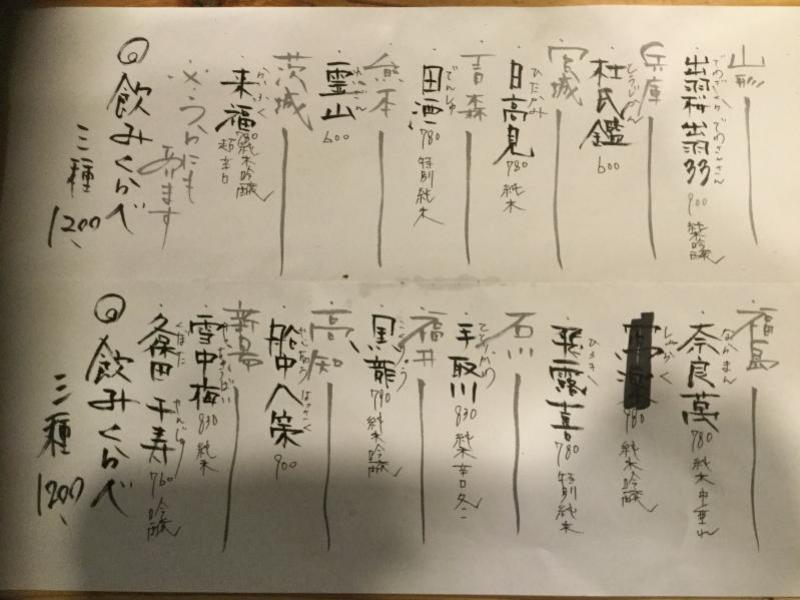 山形
出羽桜 出羽33 900 純米吟醸
でわざくら でわさんさん
兵庫
杜氏鑑 600
とうじかん
宮城
日高見 780 純米
ひたかみ
青森
田酒 780 特別純米
でんしゅ
熊本
霊山 600
れいざん
茨城
来福 780 純米吟醸 超辛口
らいふく
×うらにも
あります
◎飲みくらべ
三種 1200、
福島
奈良萬 780 純米 中垂れ
ならまん
780 純米吟醸
飛露喜 780 特別純米
ひろき
石川
手取川 830 純米 辛口
てどりがわ
福井
黒龍 790 純米吟醸
こくりゅう
高知
船中八策 900
せんちゅう はっさく
新潟
雪中梅 830 純米
せっちゅうばい
久保田 千寿 760 吟醸
くぼた せんじゅ
◎飲みくらべ
三種 1200、